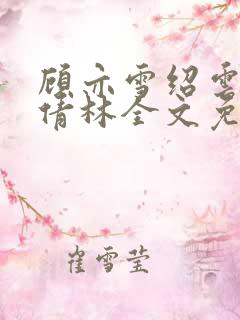 顾亦雪绍雲
倩林全文免
崔雪莹